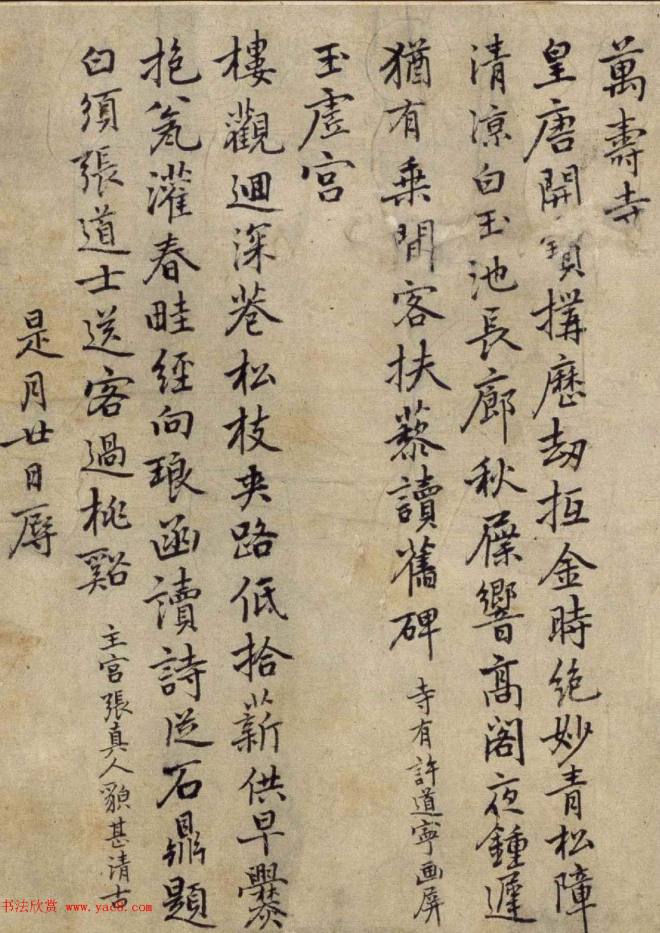 萬壽寺
皇唐開寶搆歷劫抵金時絶妙青松障
清涼白玉池長廊秋屧響高閣夜鍾遲
猶有乗閒客扶藜讀舊碑 寺有許道寧画屏
玉虛宫
樓觀迴深巷松枝夾路低拾薪供早爨
抱瓮灌春畦經向琅函讀詩從石鼎題
白須張道士送客過桃谿 主宫張真人貌甚清古
是月廿日厚
书法欣赏 www.yac8.com